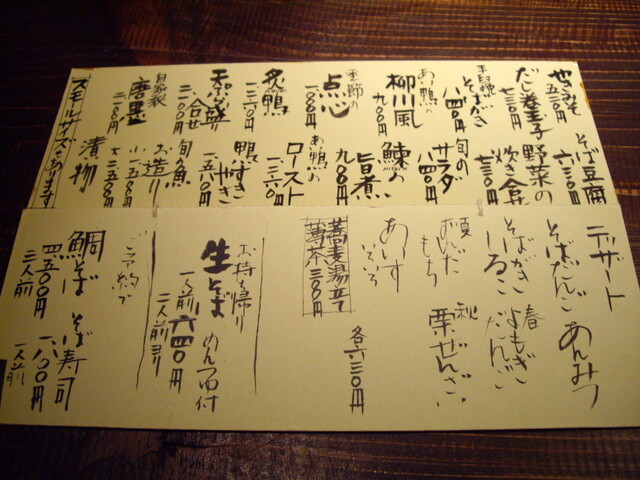 やきみそ
五三〇円
だし巻玉子
七三〇円
手臼挽
そばがき
八四〇円
あい鴨の
柳川風
九〇〇円
季節の
点心
一、〇〇〇円
炙り鴨
天ぷら盛り合せ
三一〇〇円
自家製
唐墨
三一〇〇円
そば豆腐
六三〇円
野菜の
炊き合せ
七三〇円
旬の
サラダ
八四〇円
鰊の
旨煮
九〇〇円
あい鴨の
ロースト
一、二六〇円
鴨すき
やき
一、五七〇円
旬の魚
お造り
小一、一五〇円
大二、二五〇円
漬物
スモールサイズございます
デザート
そばだんご
あんみつ
そばがき
しるこ
春
よもぎ
だんご
夏
わらび
もち
秋
栗ぜんざい
あいす
いろいろ
各六三〇円
蕎麦湯立て
蕎茶三〇〇円
お持ち帰り
生そば めんつゆ付
一人前 六四〇円
二人前ヨリ
ご予約で
鯛そば
四五〇〇円
三人前
そば寿司
一、八〇〇円
一人前